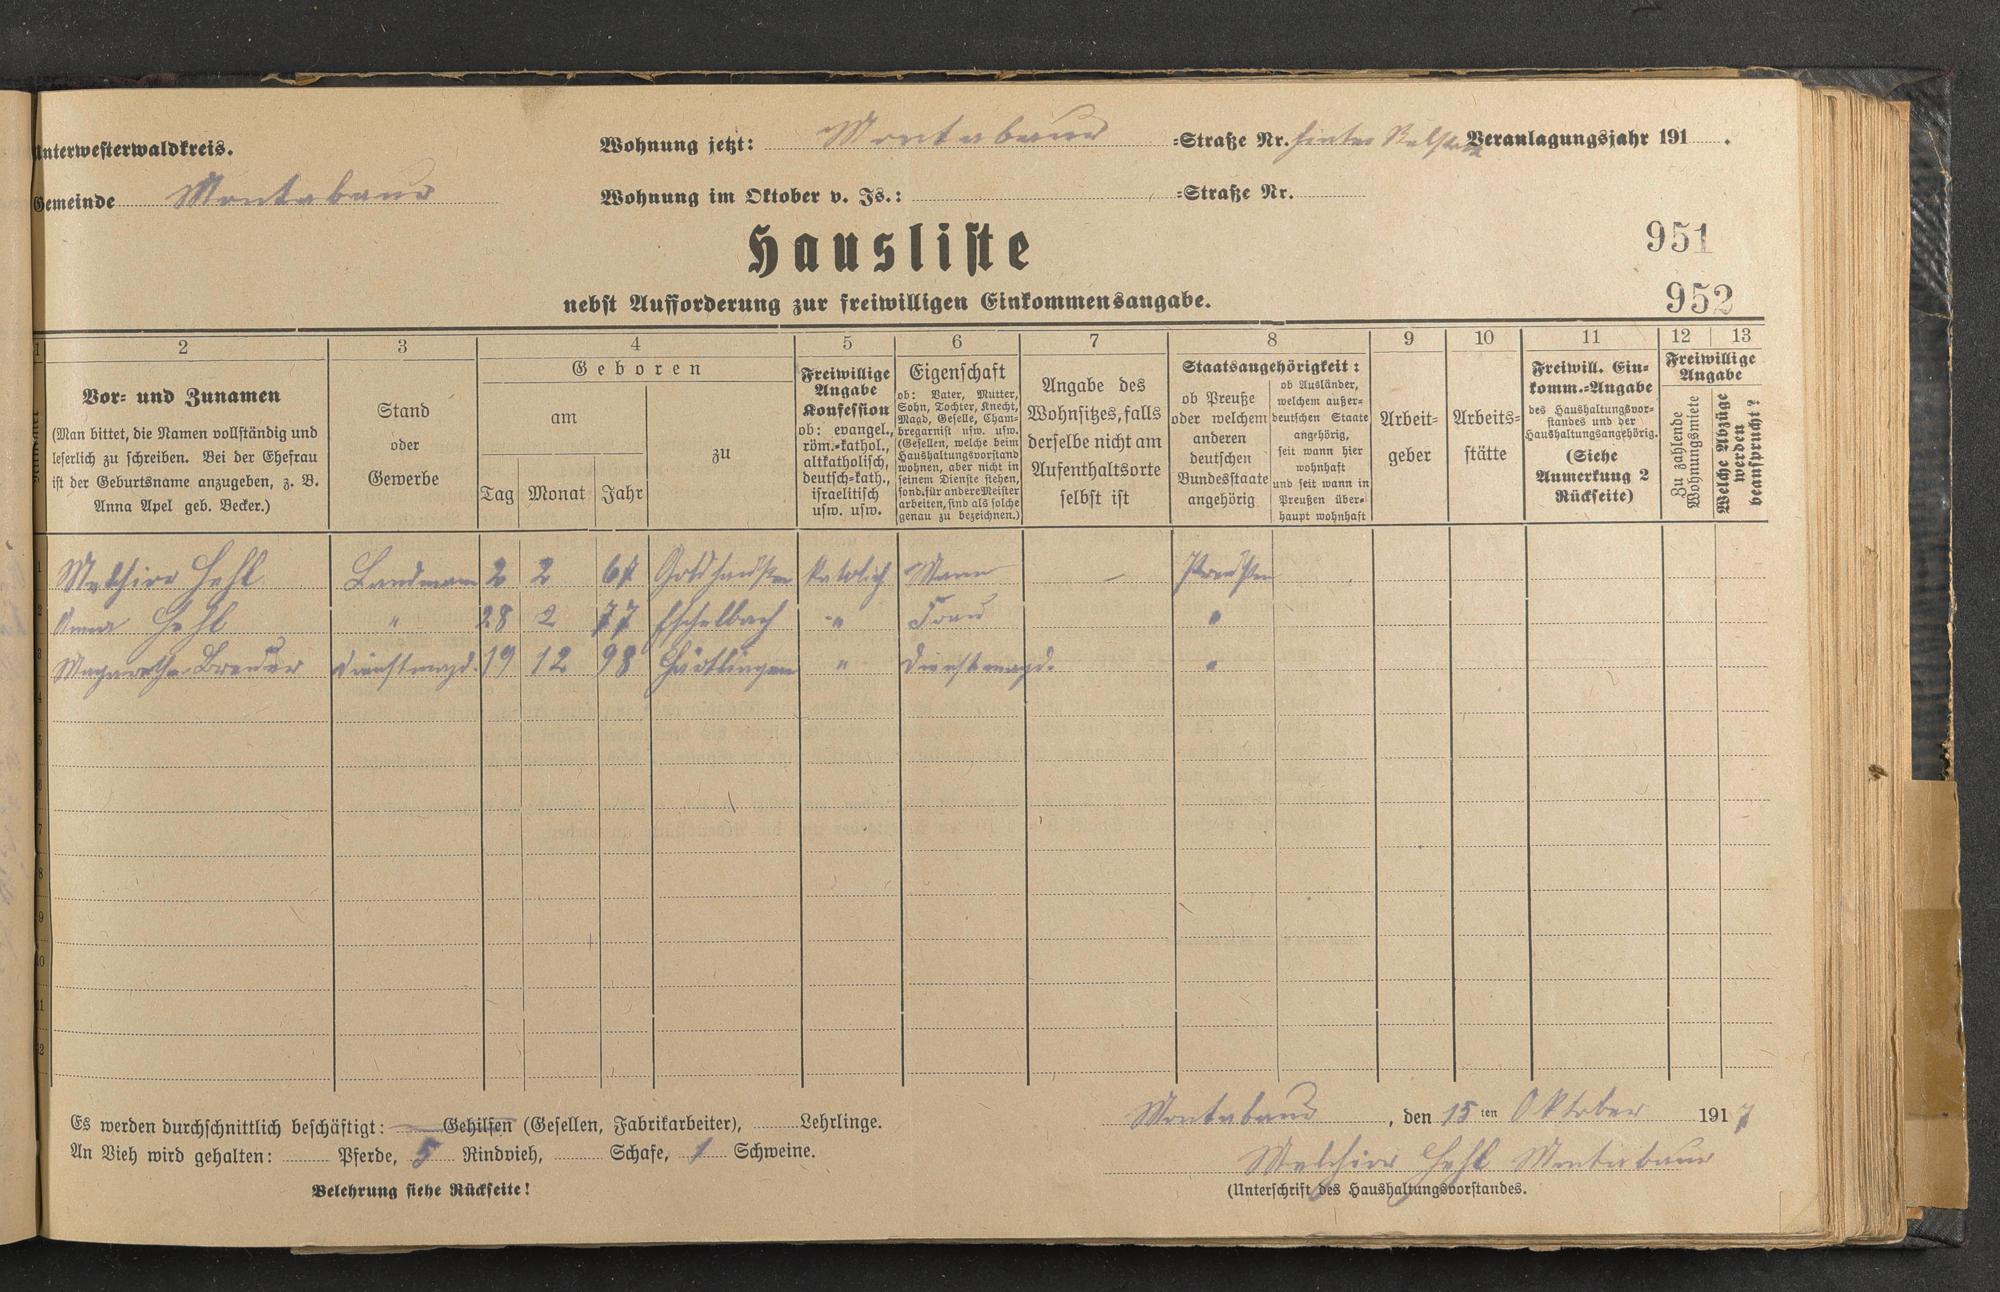 Unterwesterwaldkreis.
Wohnung jetzt: Montabaur =Straße Nr. hinter Veranlagungsjahr 191 .
Gemeinde Montabaur
Wohnung im Oktober v. Js.: =Straße Nr.
Hausliste
951
nebst Aufforderung zur freiwilligen Einkommensangabe.
952
1 2 3 4 5 6 7 8 9 10 11 12 13
Vor= und Zunamen
(Man bittet, die Namen vollständig und
leserlich zu schreiben. Bei der Ehefrau
ist der Geburtsname anzugeben, z. B.
Anna Apel geb. Becker.)
Stand
oder
Gewerbe
Geboren
am
Tag Monat Jahr
zu
Freiwillige
Angabe
Konfession
ob: evangel.,
röm.=kathol.,
altkatholisch,
deutsch=kath.,
israelitisch
usw. usw.
Eigenschaft
ob: Vater, Mutter,
Sohn, Tochter, Knecht,
Magd, Geselle, Cham=
bregarnist usw. usw.
(Gesellen, welche beim
Haushaltungsvorstand
wohnen, aber nicht in
seinem Dienste stehen,
sond. für andere Meister
arbeiten, sind als solche
genau zu bezeichnen.)
Angabe des
Wohnsitzes, falls
derselbe nicht am
Aufenthaltsorte
selbst ist
Staatsangehörigkeit:
ob Preuße
oder welchem
anderen
deutschen
Bundesstaate
angehörig
ob Ausländer,
welchem außer=
deutschen Staate
angehörig,
seit wann hier
wohnhaft
und seit wann in
Preußen über=
haupt wohnhaft
Arbeit=
geber
Arbeits=
stätte
Freiwill. Ein=
komm.=Angabe
des Haushaltungsvor=
standes und der
Haushaltungsangehörig.
(Siehe
Anmerkung 2
Rückseite)
Freiwillige
Angabe
Zu zahlende
Wohnungsmiete
Welche Abzüge
werden
beansprucht?
1 Melchior Hehl Landmann 2 2 67 Goldhausen katolich Mann — Preußen
2 Anna Hehl " 28 2 77 Eschelbach " Frau "
3 Magaretha Breuer Dienstmagd 19 12 98 Härtlingen " Dienstmagd. "
4
5
6
7
8
9
10
11
12
Es werden durchschnittlich beschäftigt: Gehilfen (Gesellen, Fabrikarbeiter), Lehrlinge.
Montabaur, den 15 ten Oktober 1917
An Vieh wird gehalten: Pferde, 5 Rindvieh, Schafe, 1 Schweine.
Melchior Hehl Montabaur
Belehrung siehe Rückseite!
(Unterschrift des Haushaltungsvorstandes.